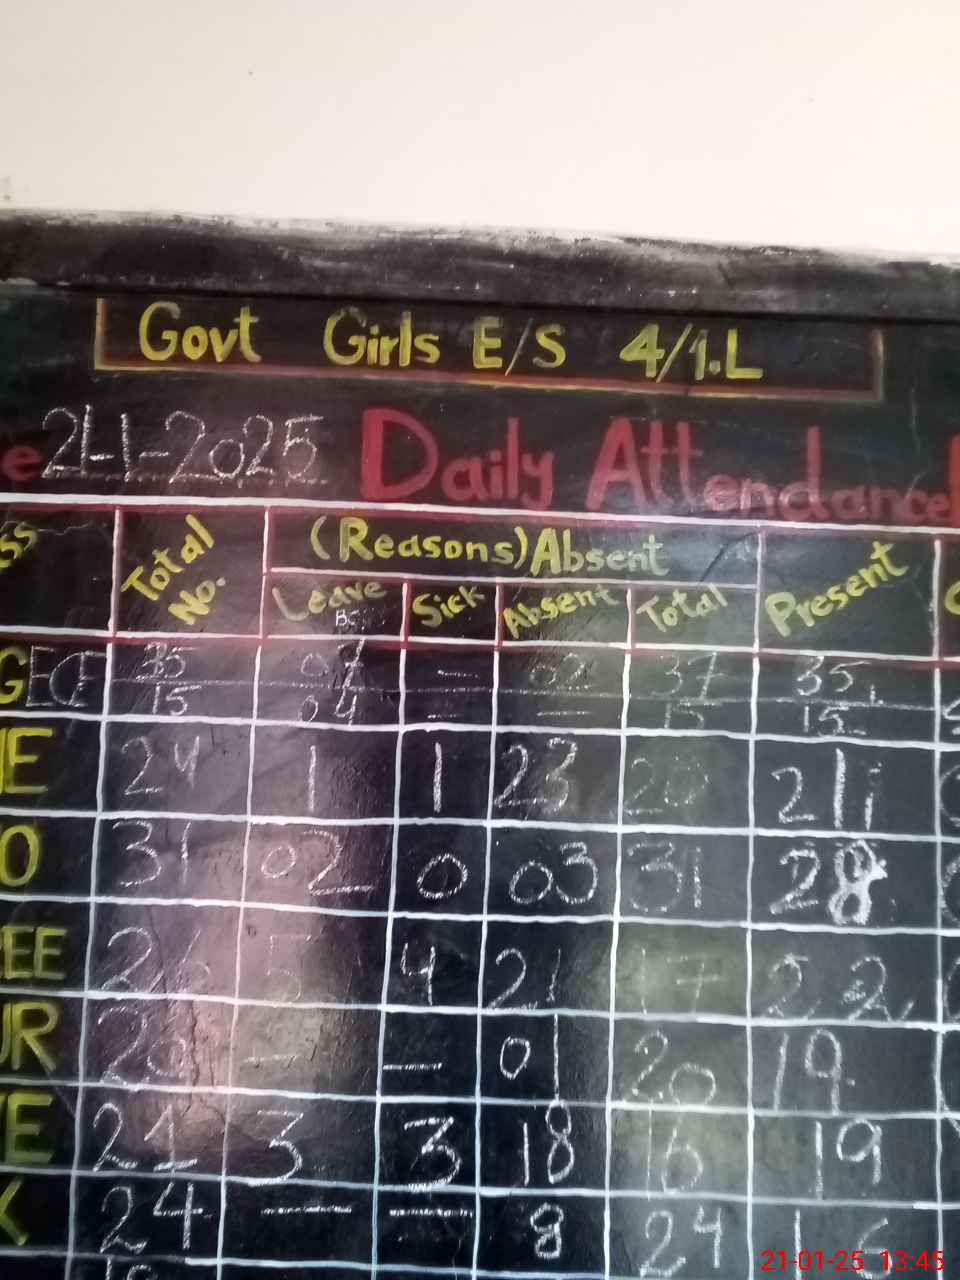 Govt Girls E/S 4/1.L
e 21-1-2025 Daily Attendance
ss Total No. (Reasons) Absent Present
Leave Sick Absent Total
G ECE 35 07 - 02 37 35
15 04 - - 15 15
NE 24 1 1 23 20 21
O 31 02 0 03 31 28
EE 26 5 4 21 17 22
UR 20 - - 01 20 19
VE 21 3 3 18 16 19
X 24 - - 8 24 16
21-01-25 13:45